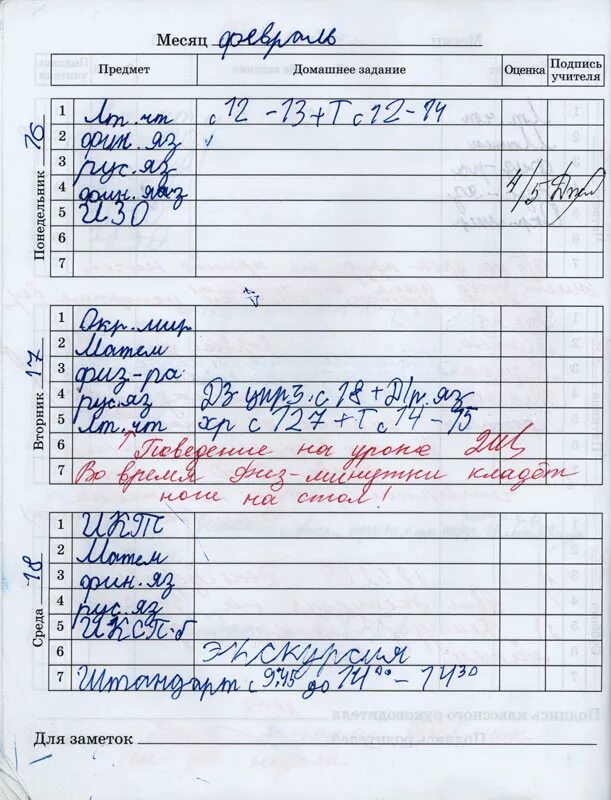 Месяц февраль
Предмет Домашнее задание Оценка Подпись учителя
Понедельник 16
1 Лт. чт с 12 - 13 + Т с 12 - 14
2 фин. яз
3 рус. яз
4 фин. яз 4/5
5 ИЗО
6
7
Вторник 17
1 Окр. мир
2 Матем
3 физ-ра
4 рус. яз ДЗ упр 3. с 18 + Д/р. яз
5 Лт. чт хр с 127 + Т с 14 - 15
6 ↑ Поведение на уроке
7 Во время физ-минутки кладёт
ноги на стол!
Среда 18
1 ИКТ
2 Матем
3 фин. яз
4 рус. яз
5 ИКСП-б
6 экскурсия
7 Штандарт с 9.45 до 14 00 - 14 30
Для заметок